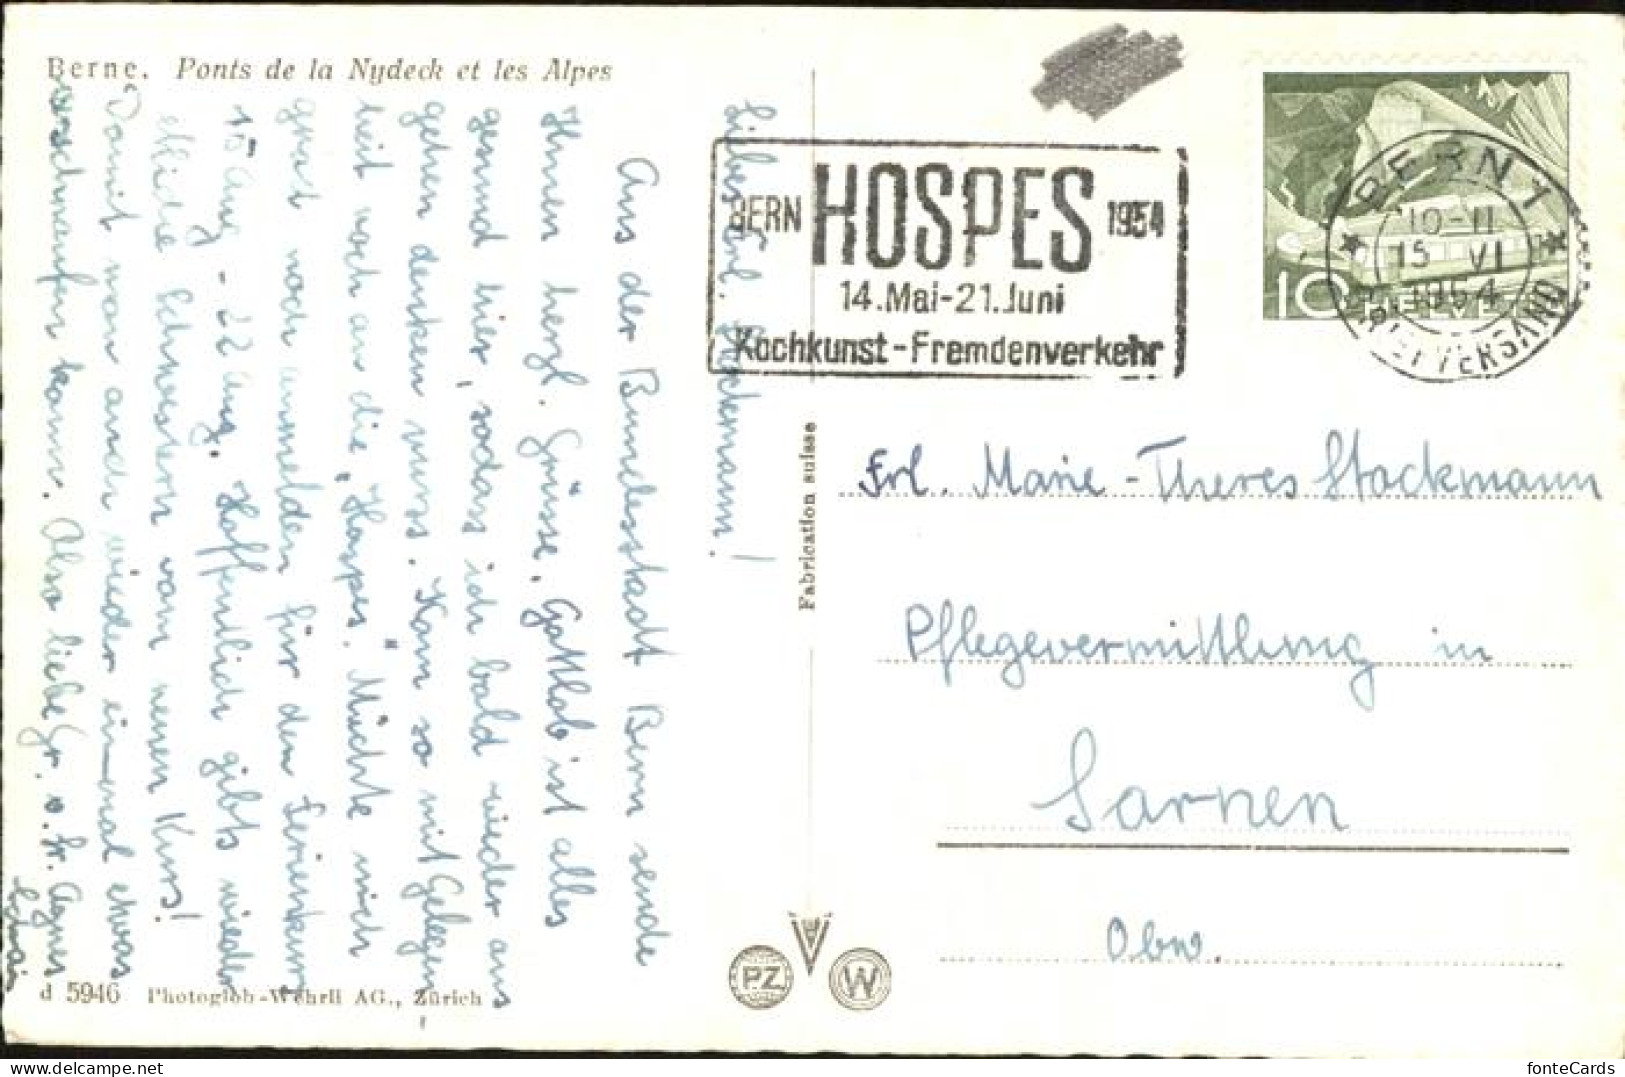 Berne. Ponts de la Nydeck et les Alpes
BERN HOSPES 1954
14.Mai-21.Juni
Kochkunst-Fremdenverkehr
BERN 1
10-11
15 VI
1954
BRIEFVERSAND
10 HELVETIA
Frl. Marie-Theres Stockmann
Pflegevermittlung in
Sarnen
Obw.
Liebes Frl. Stockmann!
Aus der Bundesstadt Bern sende
Ihnen herzl. Grüsse. Gottlob ist alles
gesund hier, sodass ich bald wieder ans
gehen denken muss. Kann so mit Gelegen-
heit noch an die "Hospes". Möchte mich
noch anmelden für den Ferienkurs
15 Aug - 22 Aug. Hoffentlich gibts wieder
etliche Schwestern vom neuen Kurs!
Damit man auch wieder einmal etwas
verschnaufen kann. Also liebe Gr. v. Sr. Agnes
Fabrication suisse
PZ
W
d 5946 Photoglob-Wehrli AG., Zürich
fonteCards